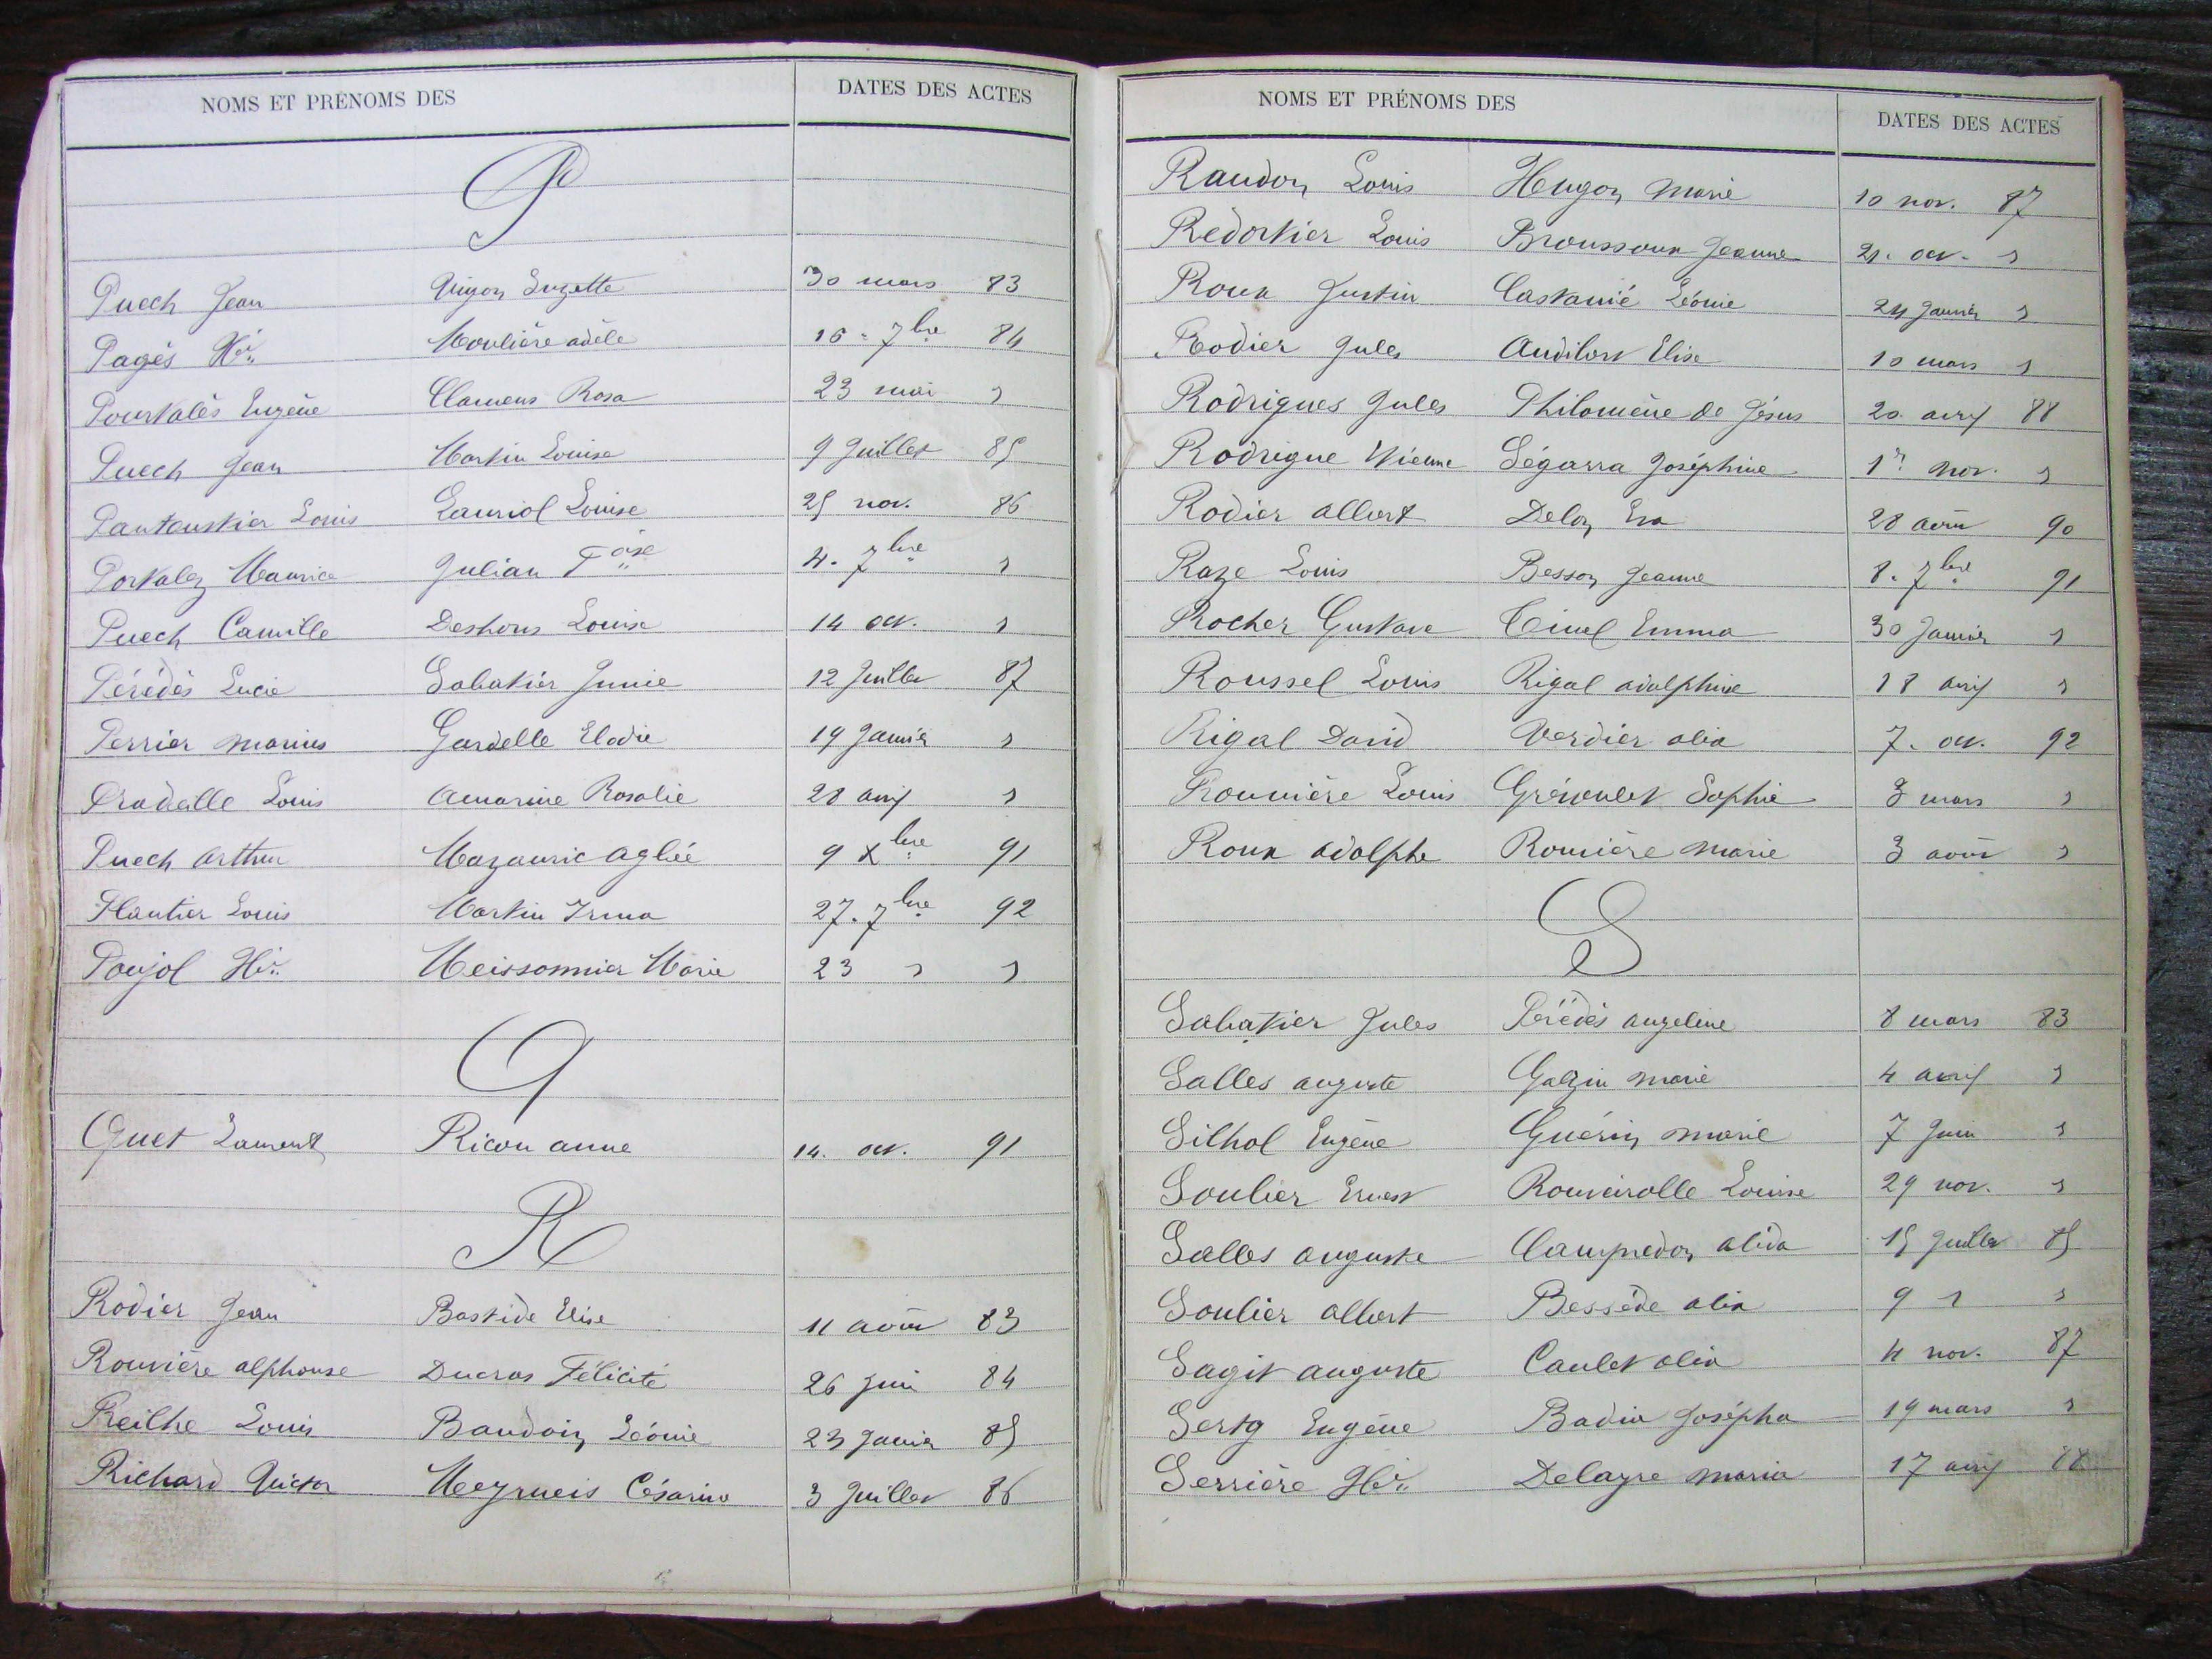 NOMS ET PRÉNOMS DES DATES DES ACTES
P
Puech Jean Quiyon Suzette 30 mars 83
Pagès Hri Moulière adèle 16 - 7bre 84
Pourtalès Eugène Clamens Rosa 23 mai "
Puech Jean Martin Louise 9 Juillet 85
Pantoustier Louis Lauriol Louise 25 nov. 86
Portalez Maurice Julian Fçoise 4. 7bre "
Puech Camille Deshons Louise 14 oct. "
Pérédès Lucie Sabatier Junie 12 Juillet 87
Perrier Marius Gardelle Elodie 19 Janvier "
Pradeille Louis Amarine Rosalie 28 avril "
Puech Arthur Mazauric Aglaé 9 Xbre 91
Plantier Louis Martin Irma 27. 7bre 92
Poujol Hri Meissonnier Marie 23 " "
Q
Quet Laurent Ricou anne 14. oct. 91
R
Rodier Jean Bastide Elise 11 août 83
Rouvière alphonse Ducros Félicité 26 Juin 84
Reilhe Louis Baudoin Léonie 23 Janvier 85
Richard Victor Meyrueis Césarine 3 Juillet 86
NOMS ET PRÉNOMS DES DATES DES ACTES
Raudon Louis Hugon Marie 10 nov. 87
Rédortier Louis Broussoux Jeanne 21. oct. "
Roux Justin Castanié Léonie 24 Janvier "
Rodier Jules Audibert Elise 10 mars "
Rodrigues Jules Philomène de Jésus 20. avril 88
Rodrigue Etienne Ségarra Joséphine 1er nov. "
Rodier Albert Delon Eva 28 août 90
Raze Louis Besson Jeanne 8. 7bre 91
Rocher Gustave Cinel Emma 30 Janvier "
Roussel Louis Rigal adolphine 18 avril "
Rigal David Verdier alix 7. oct. 92
Rouvière Louis Gréoulet Sophie 3 mars "
Roux adolphe Rouvière Marie 3 août "
S
Sabatier Jules Pérédès angeline 8 mars 83
Salles auguste Galzin Marie 4 avril "
Silhol Eugène Guérin Marie 7 Juin "
Soulier Ernest Rouveirolle Louise 29 nov. "
Salles auguste Campredon alida 15 Juillet 85
Soulier albert Bessède alix 9 " "
Sagit auguste Caulet alix 4 nov. 87
Sertg Eugène Badia Josépha 19 mars "
Serrière Hri Delayre Maria 17 avril 88